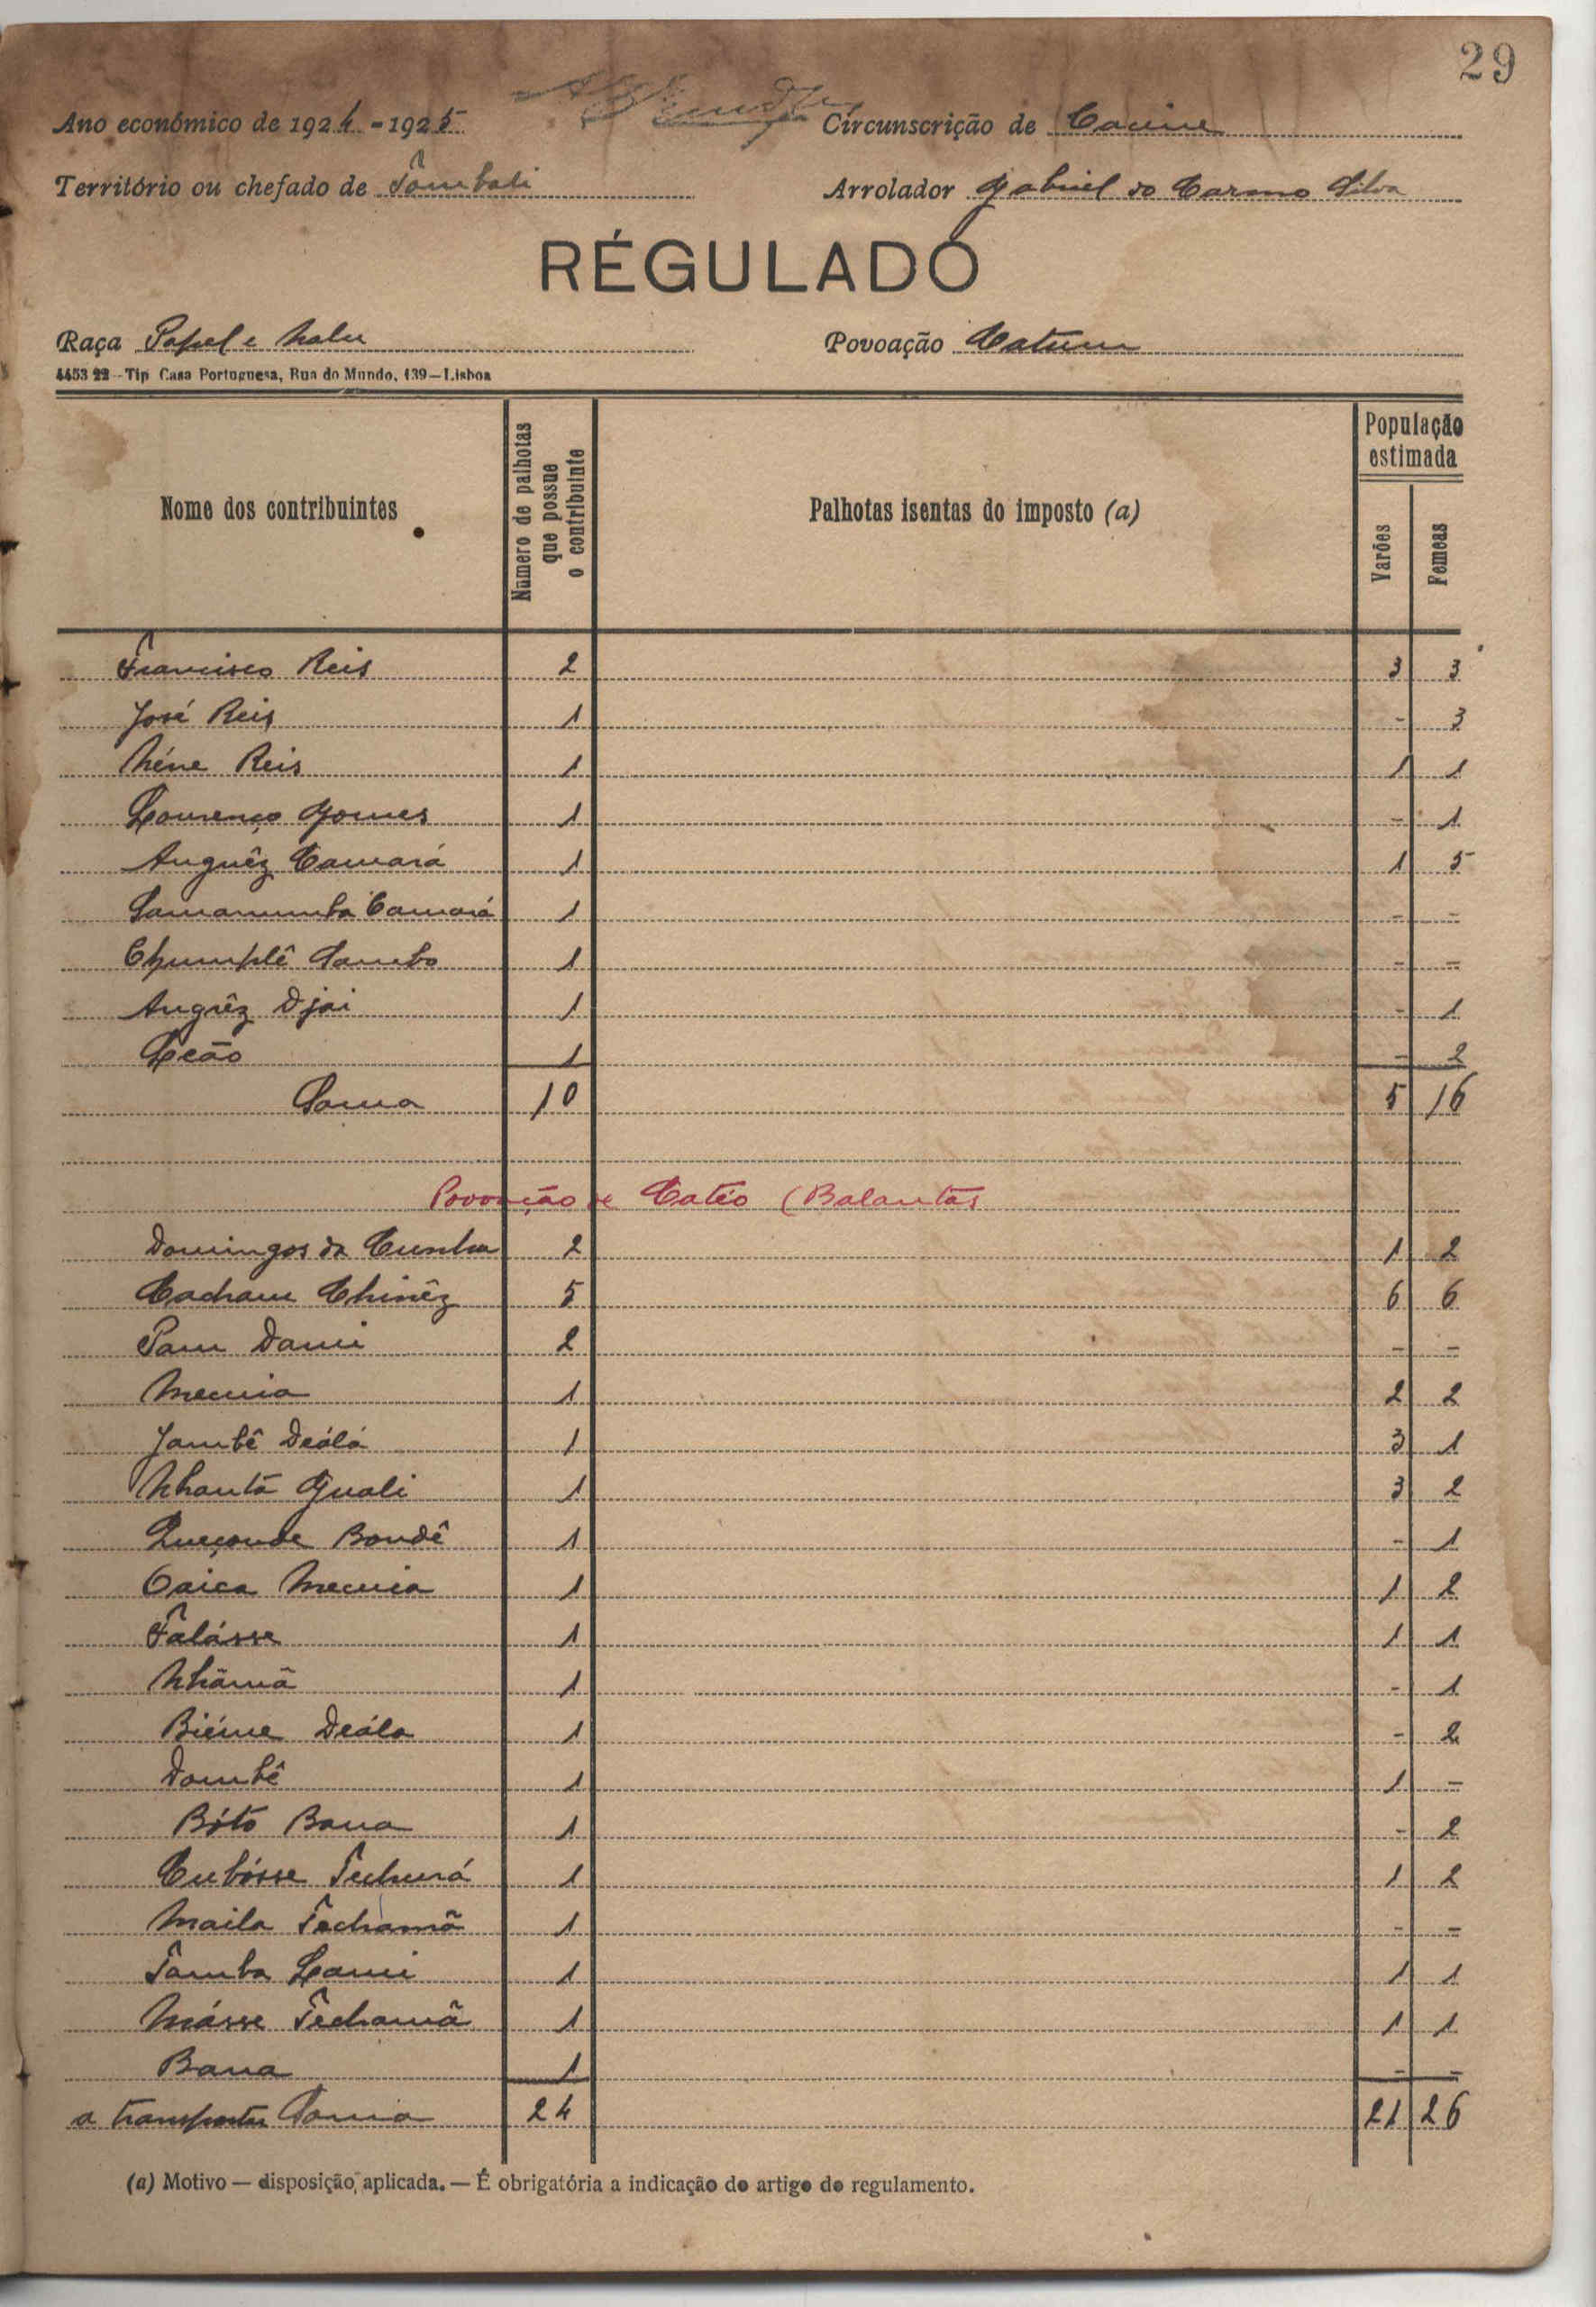 29
Ano económico de 1924-1925 Circunscrição de Cacine
Território ou chefado de Tômbali Arrolador Gabriel do Carmo Silva
RÉGULADO
Raça Papel e Nalu Povoação Catum
4453 22 - Tip Casa Portuguesa, Rua do Mundo, 139—Lisboa
Nome dos contribuintes Número de palhotas que possue o contribuinte Palhotas isentas do imposto (a) População estimada Varões Femeas
Francisco Reis 2 3 3
José Reis 1 - 3
Néne Reis 1 1 1
Lourenço Gomes 1 - 1
Anguêz Camará 1 1 5
Samanumba Camará 1 - -
Chumplê Sambo 1 - -
Angrêz Djai 1 - 1
Leão 1 - 2
Soma 10 5 16
Povoação de Catéo (Balantas
Domingos da Cunha 2 1 2
Cacham Chinêz 5 6 6
Pam Dami 2 - -
Mecuia 1 2 2
Jambê Deálá 1 3 1
Nhantã Guali 1 3 2
Queçonde Bondê 1 - 1
Caica Mecuia 1 1 2
Falásse 1 1 1
Nhãmã 1 - 1
Biéme Deála 1 - 2
Dombê 1 1 -
Bótó Bana 1 - 2
Cubósse Tuhurá 1 1 2
Maila Techamã 1 - -
Tamba Lami 1 1 1
Másse Techamã 1 1 1
Bana 1 - -
a transportar Soma 24 21 26
(a) Motivo — disposição, aplicada. — É obrigatória a indicação do artigo do regulamento.